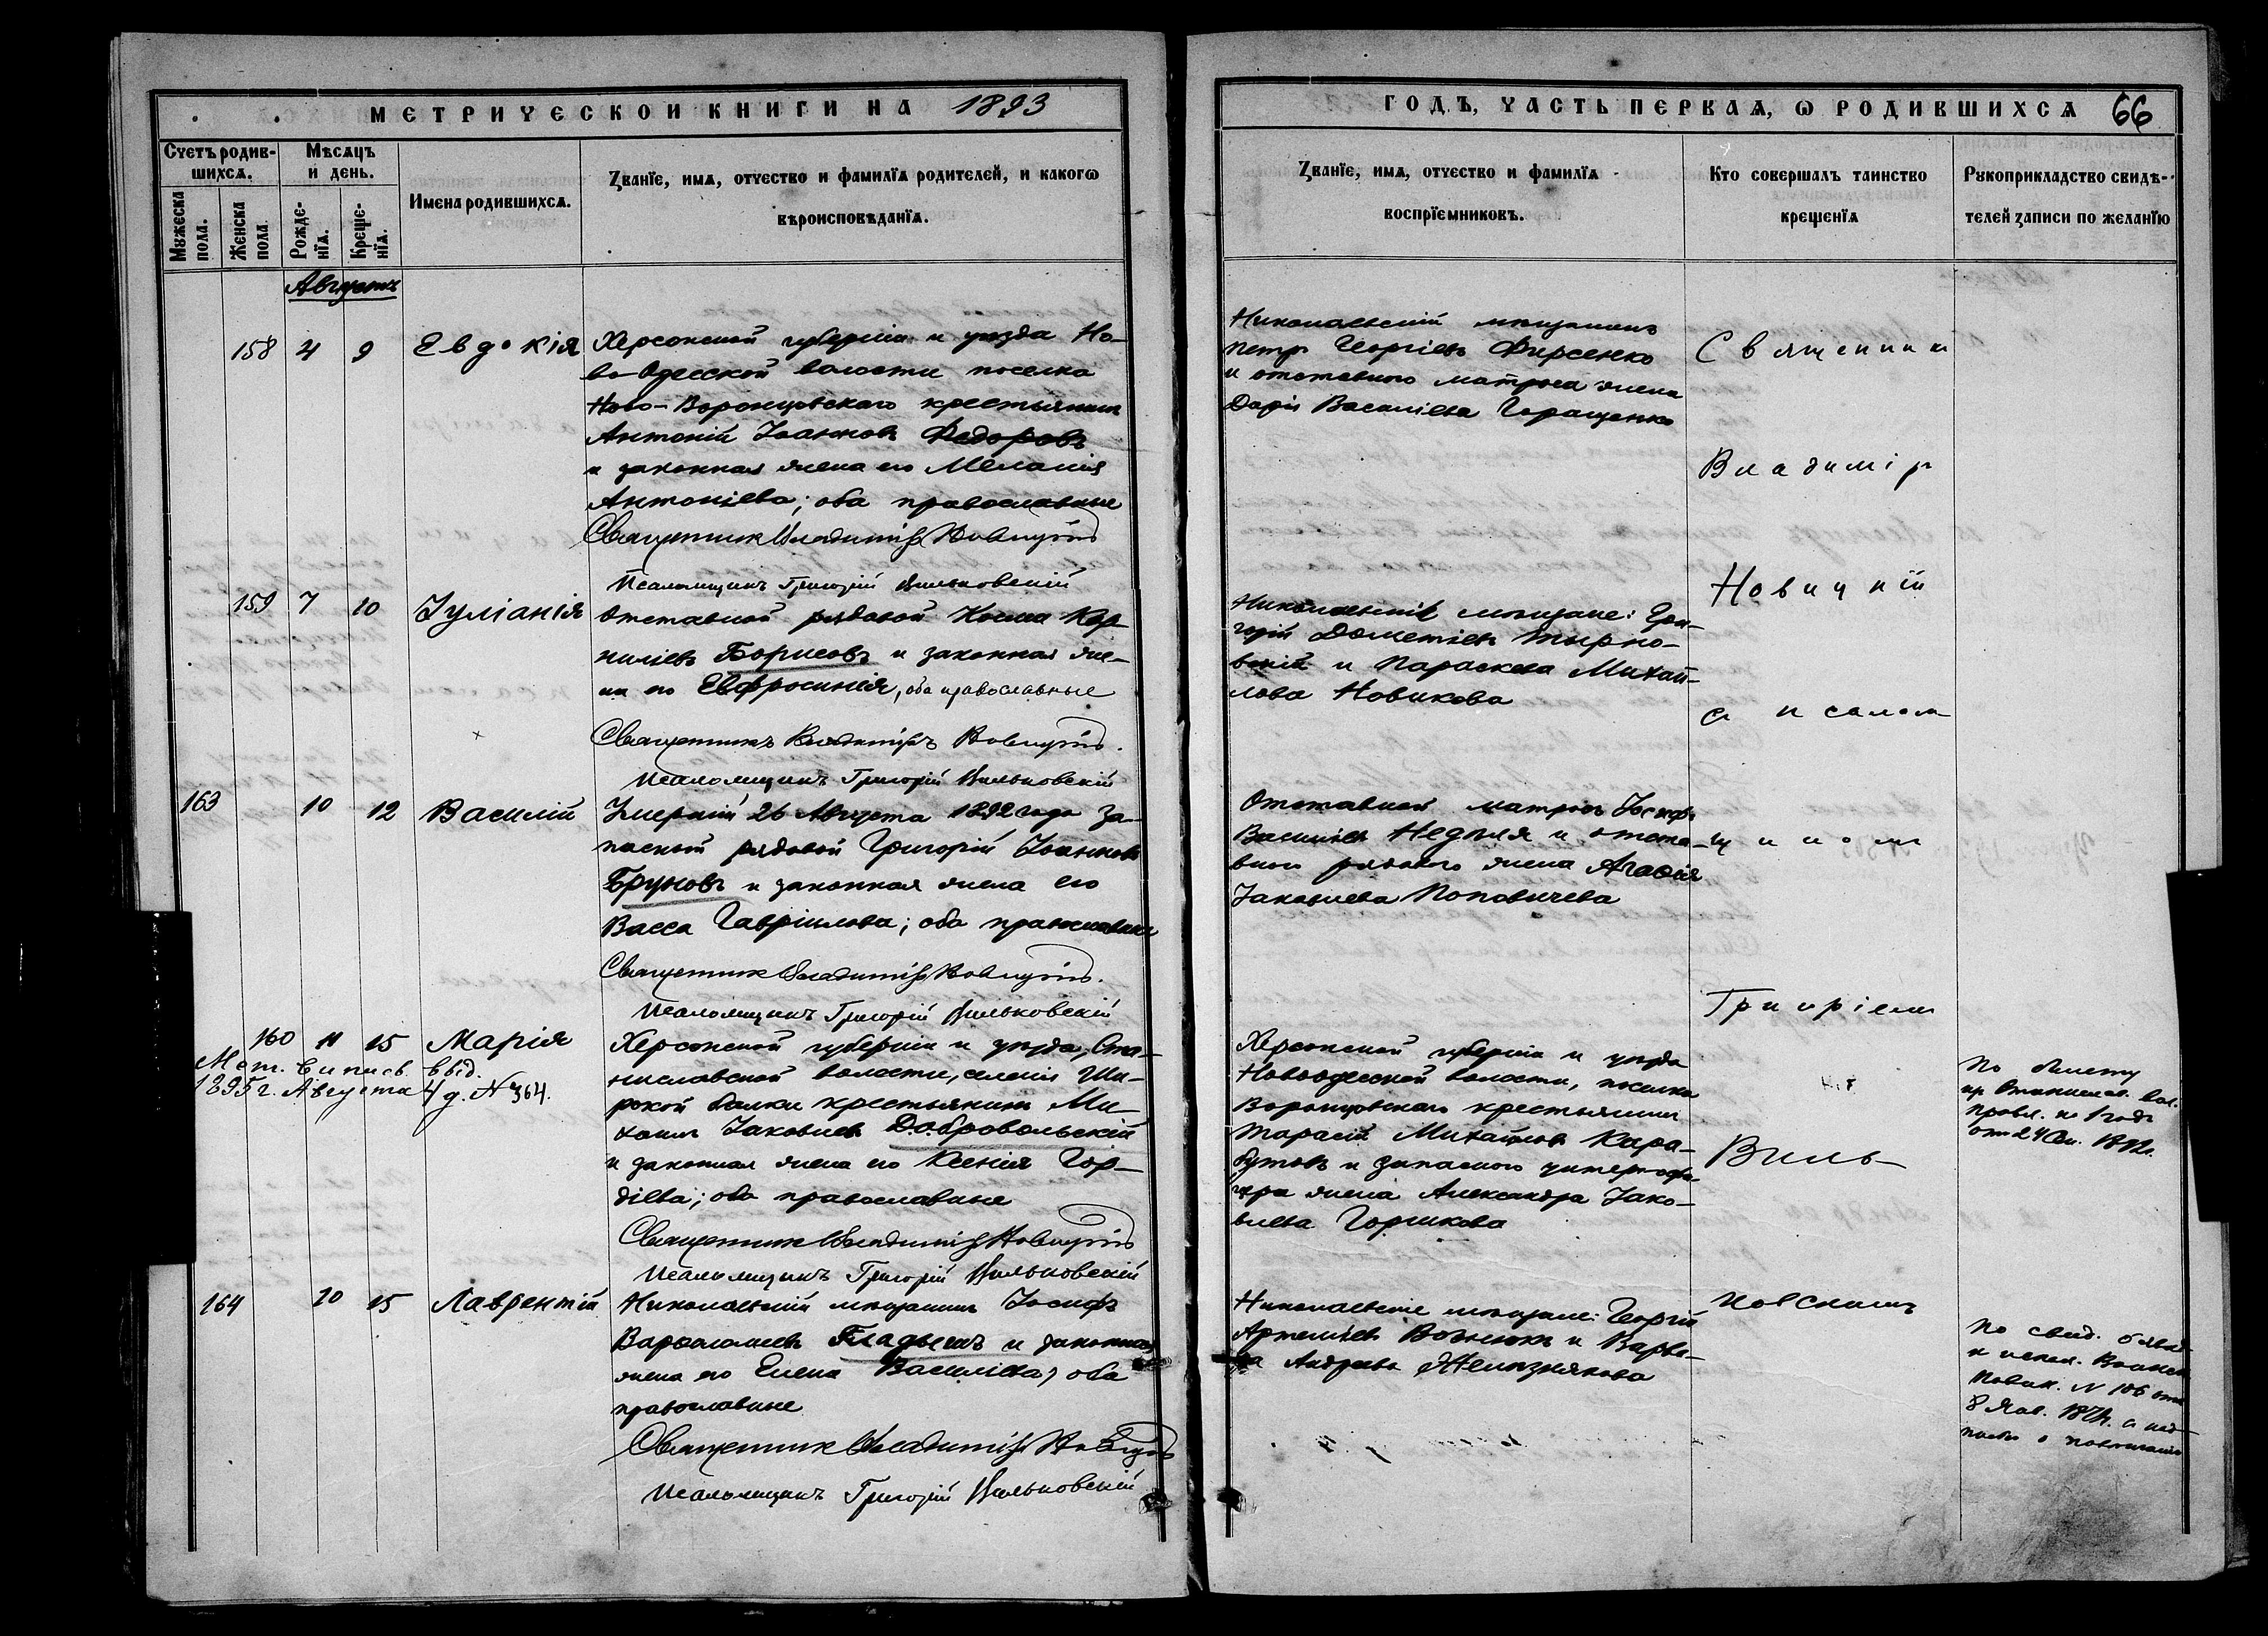 МЕТРИЧЕСКОЙ КНИГИ НА 1893
ГОДЪ, ЧАСТЬ ПЕРВАѦ, Ѡ РОДИВШИХСѦ 66
Счетъ родив-
шихсѧ.
Мꙋжеска
пола.
Женска
пола.
Мѣсѧцъ
и день.
Рожде-
нїѧ.
Креще-
нїѧ.
Имена родившихсѧ.
Званїе, имѧ, отчество и фамилїѧ родителей, и какогѡ
вѣроисповѣданїѧ.
Званїе, имѧ, отчество и фамилїѧ
воспрїемниковъ.
Кто совершалъ таинство
крещенїѧ
Рꙋкоприкладство свидѣ-
телей записи по желанїю
Августъ
158 4 9 Евдокія
Херсонской губерніи и уѣзда Но-
во-Одесской волости поселка
Ново-Воронцовскаго крестьянинъ
Антоній Іоанновъ Федоровъ
и законная жена его Меланія
Антоніева; оба православные
Священникъ Владиміръ Новицкій
Псаломщикъ Григорій Вильковскій
Николаевскій мѣщанинъ
Петръ Георгіевъ Фирсенко
и отставного матроса жена
Дарія Василіева Геращенко
159 7 10 Іуліанія
Отставной рядовой Косма Кор-
ниліевъ Борисовъ и законная же-
на его Евфросинія, оба православные
Священникъ Владиміръ Новицкій.
Псаломщикъ Григорій Вильковскій
Николаевскіе мѣщане: Гри-
горій Дометіевъ Тырно-
вскій и Параскева Михай-
лова Новикова
163 10 12 Василій
Умершій 26 Августа 1892 года за-
пасный рядовой Григорій Іоанновъ
Бруновъ и законная жена его
Васса Гавріилова; оба православные
Священникъ Владиміръ Новицкій.
Псаломщикъ Григорій Вильковскій
Отставной матросъ Іосифъ
Василіевъ Недѣля и отста-
вного рядового жена Агафія
Іаковлева Поповичева
160 11 15 Марія
Мет. выпись выд.
1895 г. Августа 4 д. № 364.
Херсонской губерніи и уѣзда, Ста-
ниславской волости, селенія Ши-
рокой балки крестьянинъ Ми-
хаилъ Іаковлевъ Добровольскій
и законная жена его Ксенія Гор-
діева; оба православные
Священникъ Владиміръ Новицкій
Псаломщикъ Григорій Вильковскій
Херсонской губерніи и уѣзда
Новоодесской волости, поселка
Воронцовскаго крестьянинъ
Тарасій Михайловъ Кара-
бутовъ и запасного унтеръ-офи-
цера жена Александра Іако-
влева Горшкова
По билету
Станислав. вол.
правл. на 1 годъ
отъ 24 1892г.
164 10 15 Лаврентій
Николаевскій мѣщанинъ Іосифъ
Варфоломеевъ Гладышъ и законная
жена его Елена Василіева; оба
православные
Священникъ Владиміръ Новицкій
Псаломщикъ Григорій Вильковскій
Николаевскіе мѣщане: Георгій
Артеміевъ Вознюкъ и Варва-
ра Андреева Желѣзнякова
По свид. о явкѣ
к испол. Воинск.
Повин. № 106 отъ
8 Янв.
Священник
Владимір
Новицкій
съ псалом
щиком
Григоріем
Виль-
ковскимъ